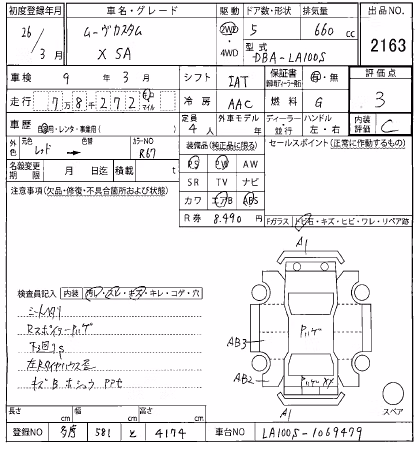 初度登録年月 車名・グレード 駆動 ドア数・形状 排気量 出品NO.
26/3月 ムーヴカスタム X SA 2WD・4WD 5 660cc 2163
型式 DBA-LA100S
車検 9年3月 シフト IAT 保証書 有・無 評価点 3
走行 78272 km マイル 冷房 AAC 燃料 G
車歴 自家用・レンタ・事業用( ) 定員 4人 外車モデル 年 ディーラー・並行 ハンドル 左・右 内装評価 C
外色 元色 レッド 色替 カラーNO R67 装備品(純正品に限る) セールスポイント(正常に作動するもの)
PS PW AW
名義変更期限 月 日迄 積載 t SR TV ナビ
注意事項(欠品・修復・不具合箇所および状態) カワ エアB ABS
R券 8,490円 Fガラス トビ石・キズ・ヒビ・ワレ・リペア跡
A1
検査員記入 内装 汚レ・スレ・キズ・キレ・コゲ・穴
シートスリ
Rスポイラーハゲ
下廻りS
左Rタイヤハウス
キズB ホシュウ
ハゲ
AB3
AB2
ハゲ XX
A1
スペア
長さ cm 幅 cm 高さ cm
登録NO 多摩 581 と 4174 車台NO LA100S-1069479